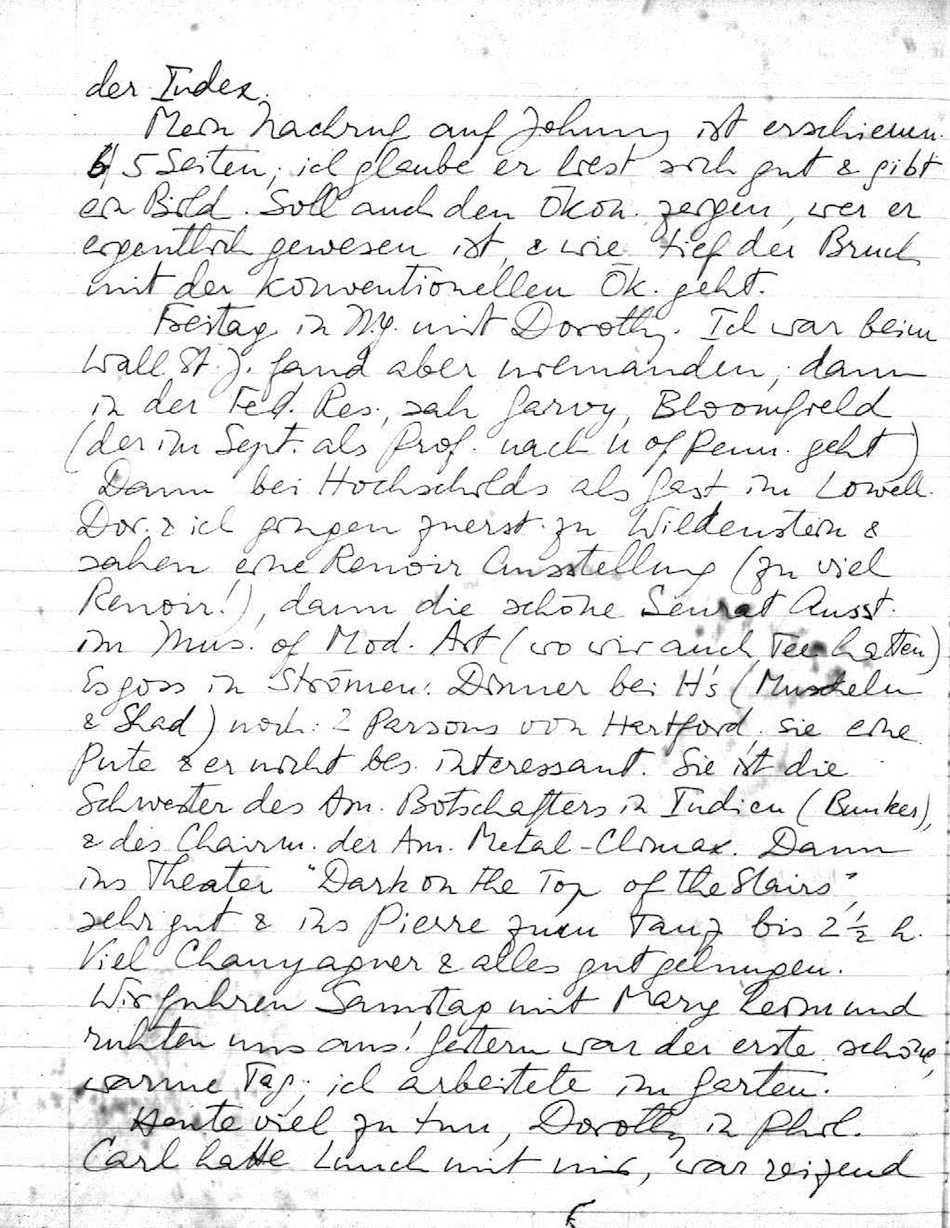 der Index.
Mein Nachruf auf Johnny ist erschienen.
5 Seiten; ich glaube er liest sich gut & gibt
ein Bild. Soll auch den Ökon. zeigen, wer er
eigentlich gewesen ist, & wie tief der Bruch
mit der konventionellen Ök. geht.
Freitag in NY. mit Dorothy. Ich war beim
Wall St. J. fand aber niemanden, dann
in der Fed. Res., sah Garvy, Bloomfield
(der im Sept. als Prof. nach U of Penn. geht)
Dann bei Hochschilds als Gast im Lowell.
Dor. & ich gingen zuerst zu Wildenstein &
sahen eine Renoir Ausstellung (zu viel
Renoir!), dann die schöne Seurat Ausst.
im Mus. of Mod. Art (wo wir auch Tee hatten)
Es goss in Strömen. Dinner bei H's (Muscheln
& Shad) noch: 2 Parsons von Hartford, sie eine
Pute & er nicht bes. interessant. Sie ist die
Schwester des Am. Botschafters in Indien (Bunker),
& des Chairm. der Am. Metal-Climax. Dann
ins Theater "Dark on the Top of the Stairs",
sehr gut & ins Pierre zum Tanz bis 2 ½ h.
Viel Champagner & alles gut gelungen.
Wir fuhren Samstag mit Mary heim und
ruhten uns aus! Gestern war der erste schöne,
warme Tag; ich arbeitete im Garten.
Heute viel zu tun, Dorothy in Phil.
Carl hatte Lunch mit mir, war reizend